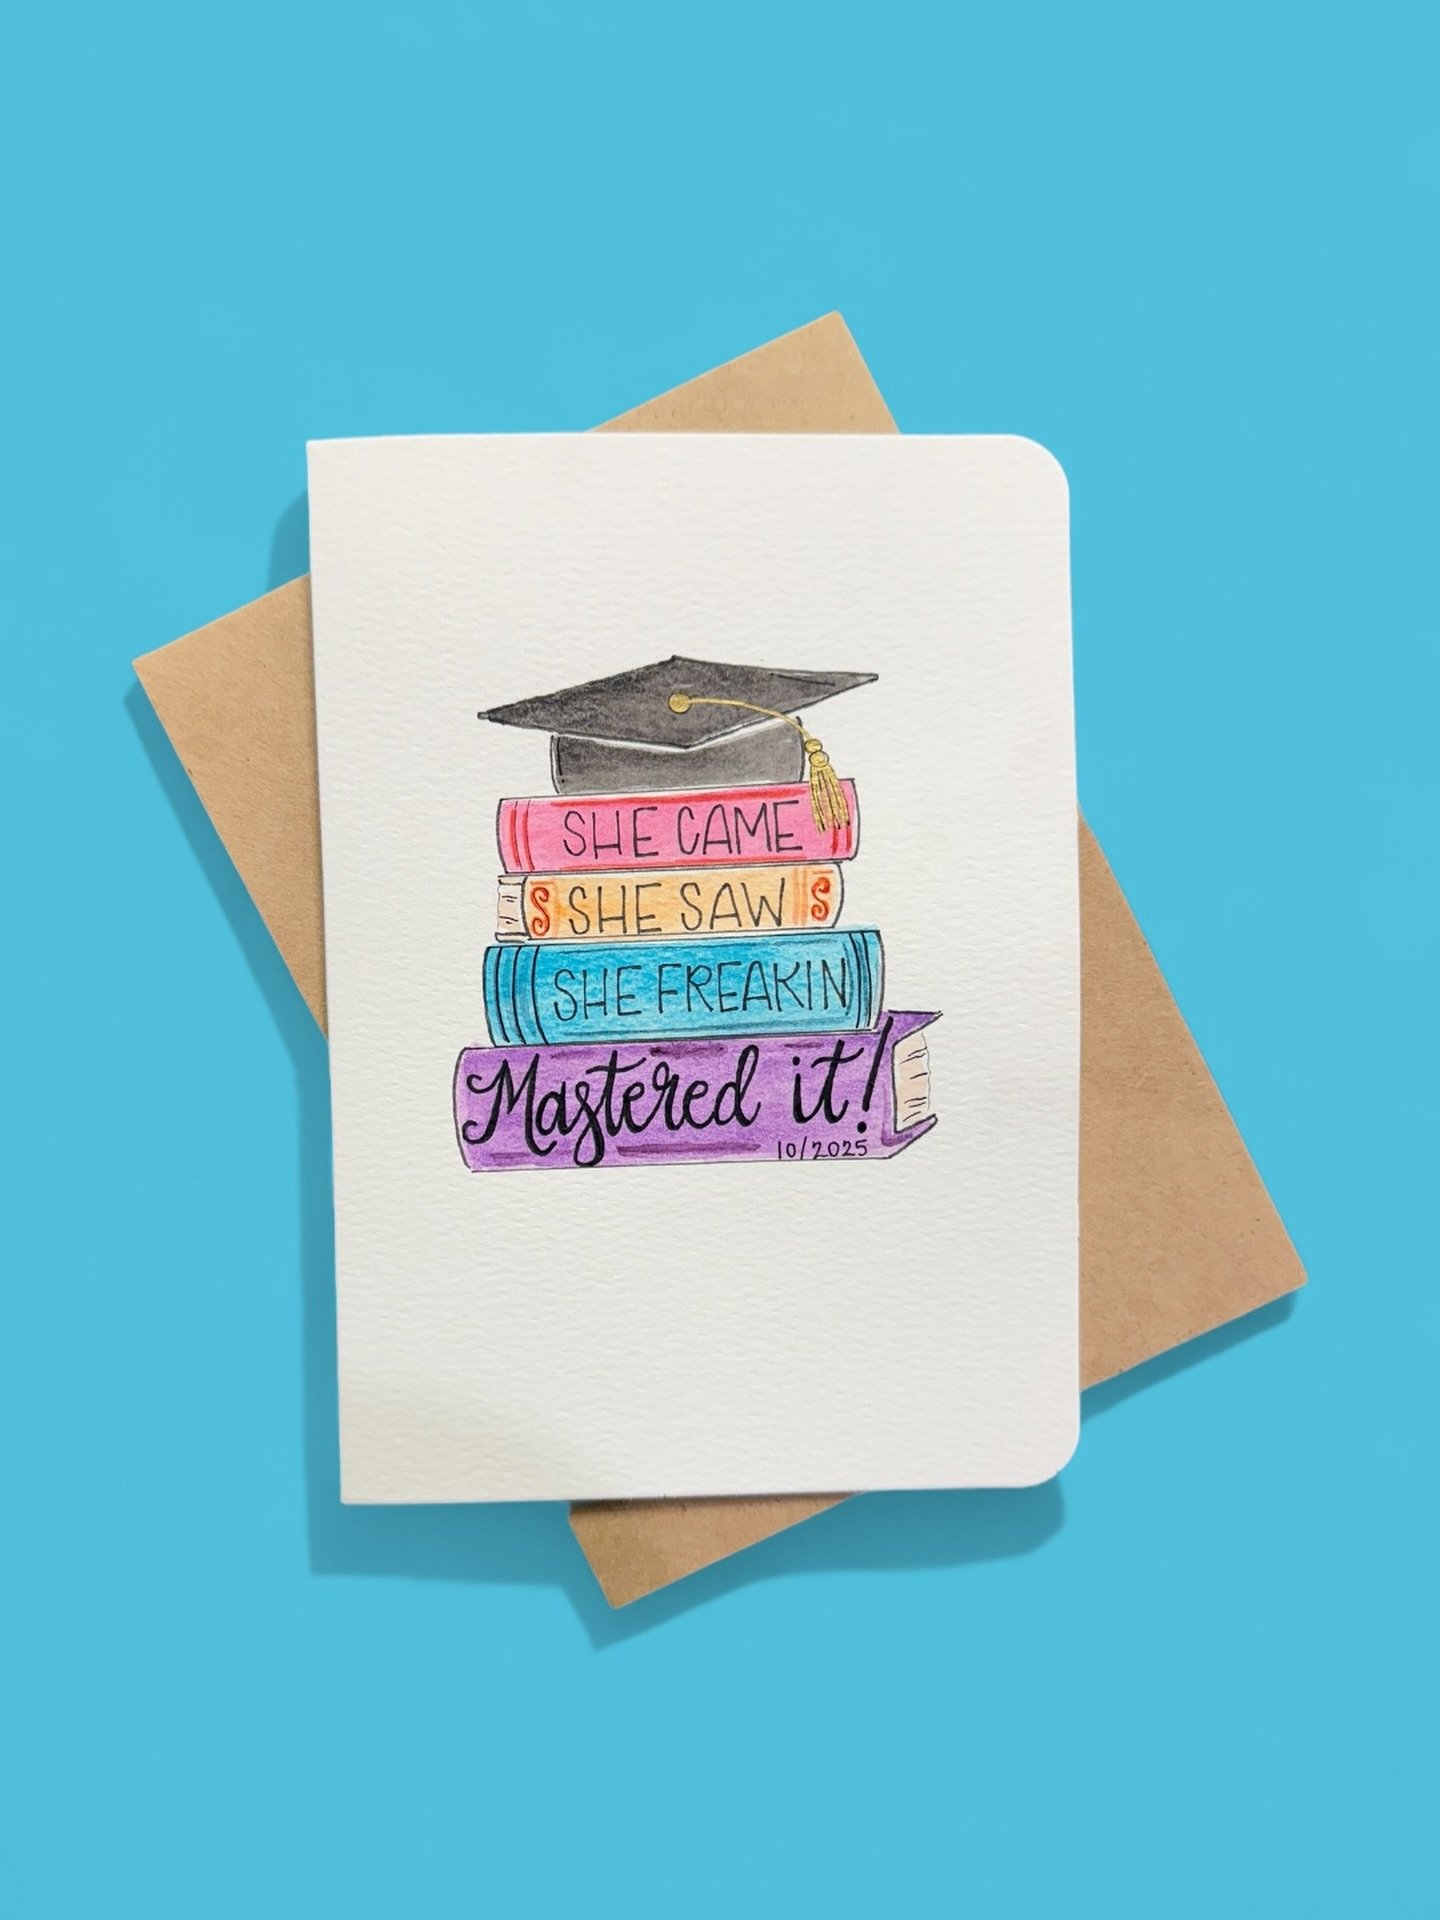 SHE CAME
S SHE SAW S
SHE FREAKIN
Mastered it!
10/2025